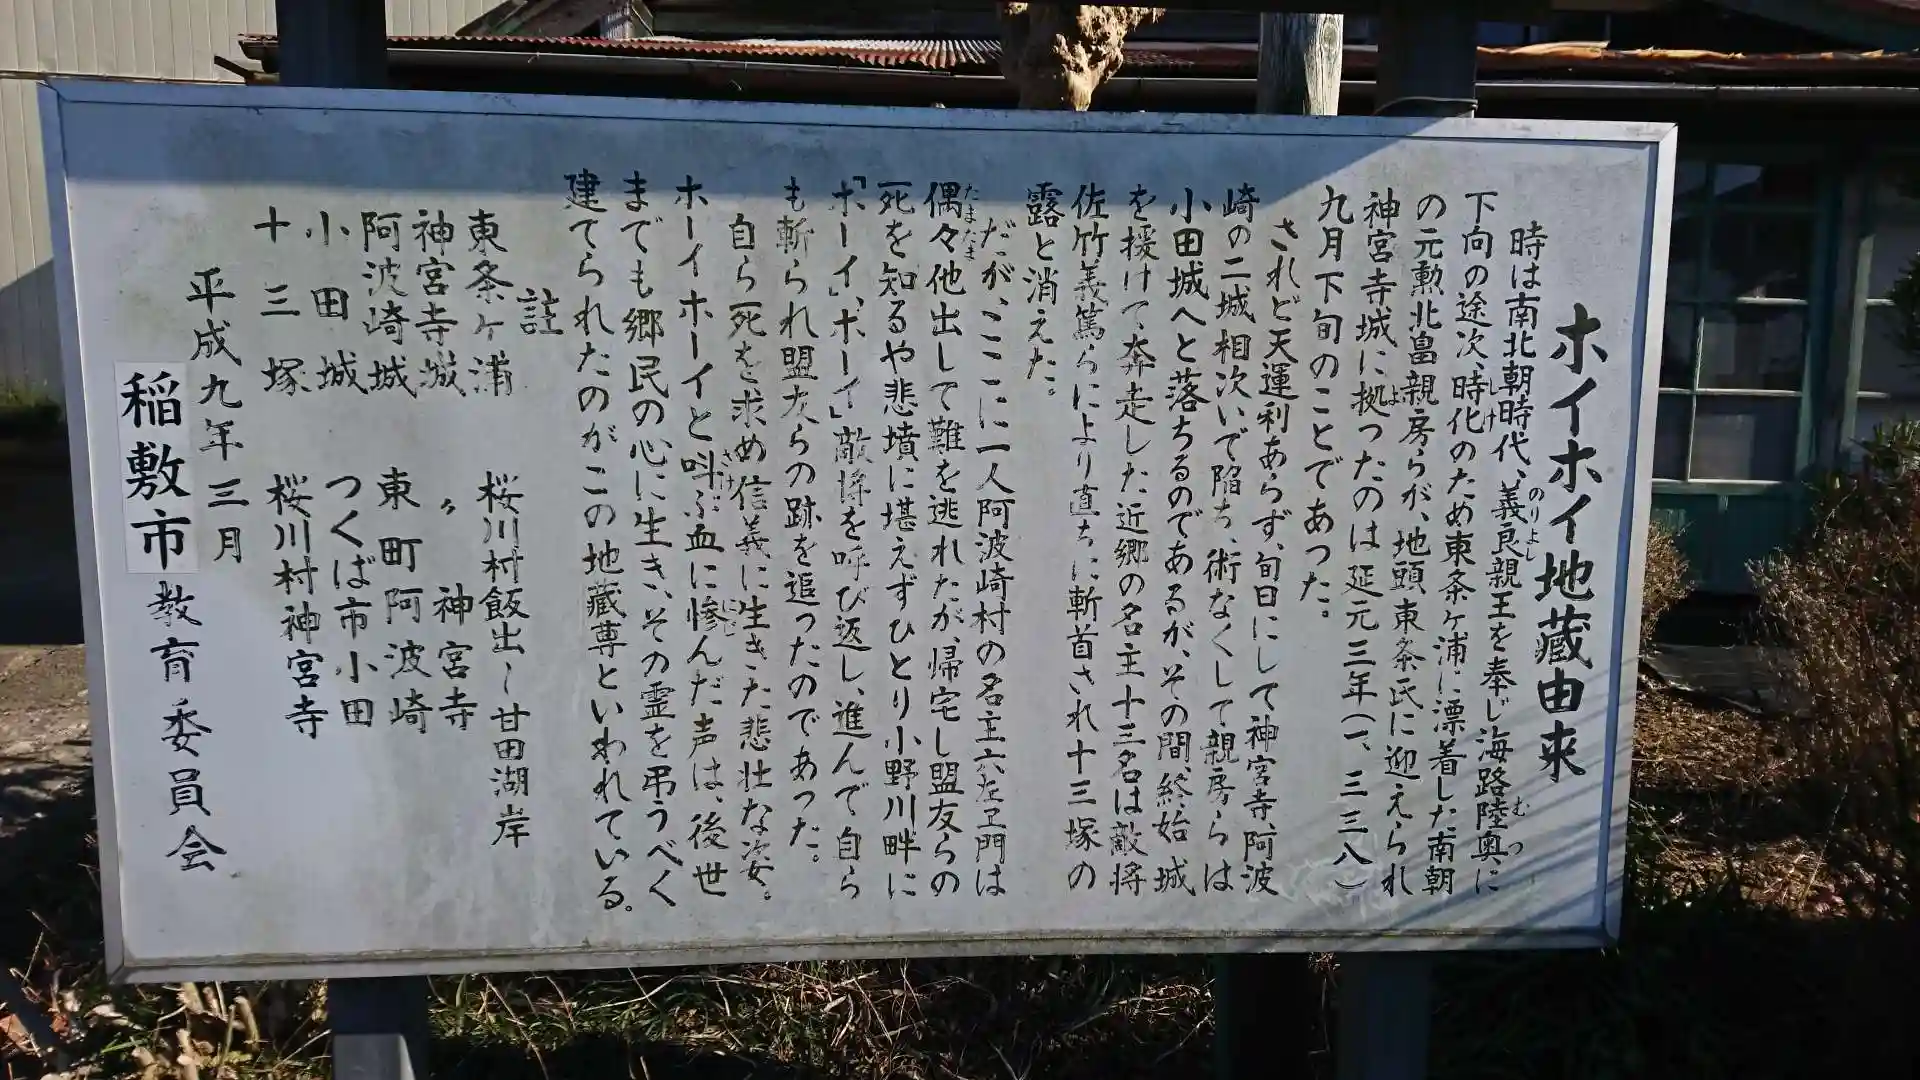 ホイホイ地蔵由来
時は南北朝時代、義良親王を奉じ海路陸奥に
のりよし
むつ
下向の途次、時化のため東条ヶ浦に漂着した南朝
しけ
の元勲北畠親房らが、地頭東条氏に迎えられ
神宮寺城に拠ったのは延元三年(一、三三八)
よ
九月下旬のことであった。
されど天運利あらず、旬日にして神宮寺、阿波
崎の二城相次いで陥ち、術なくして親房らは
小田城へと落ちるのであるが、その間、終始城
を援けて奔走した近郷の名主十三名は敵将
佐竹義篤らにより直ちに斬首され十三塚の
露と消えた。
だが、ここに一人阿波崎村の名主六左ヱ門は
偶々他出して難を逃れたが、帰宅し盟友らの
たまたま
死を知るや悲墳に堪えずひとり小野川畔に
「ホーイ」、「ホーイ」敵将を呼び返し、進んで自ら
も斬られ盟友らの跡を追ったのであった。
自ら死を求め信義に生きた悲壮な姿。
ホーイホーイと叫ぶ血に惨んだ声は、後世
さけ
にじ
までも郷民の心に生き、その霊を弔うべく
建てられたのがこの地蔵尊といわれている。
註
東条ヶ浦 桜川村飯出〜甘田湖岸
神宮寺城 〃 神宮寺
阿波崎城 東町阿波崎
小田城 つくば市小田
十三塚 桜川村神宮寺
平成九年三月
稲敷市教育委員会